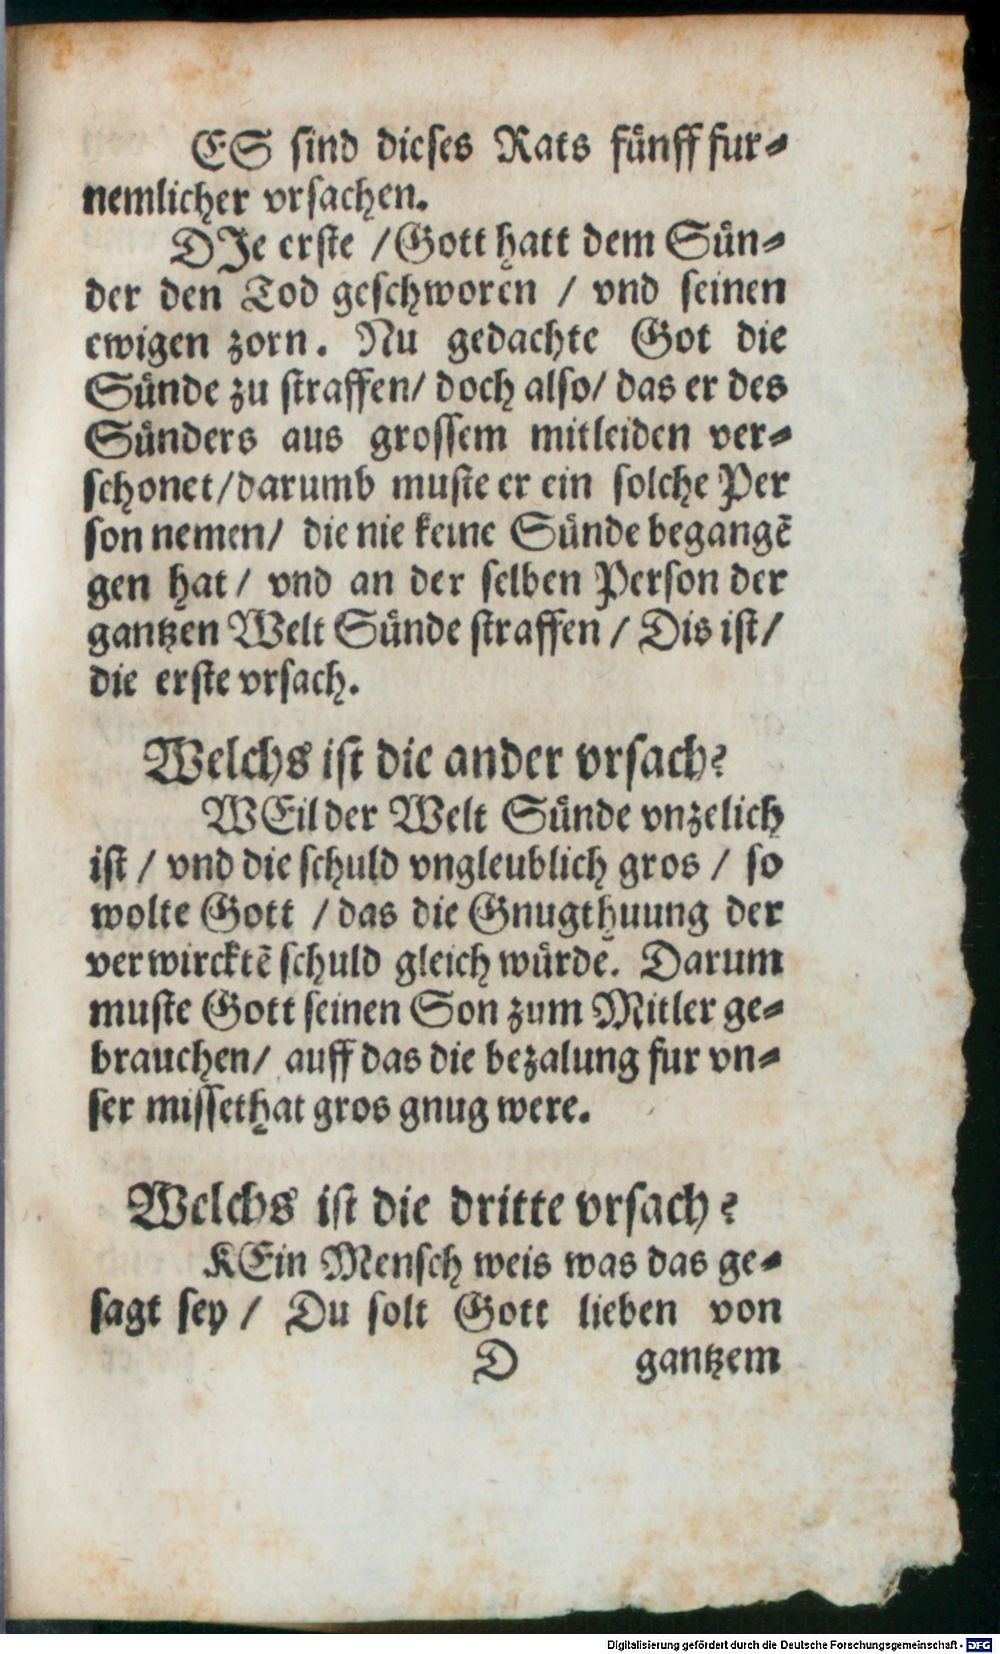 ES sind dieses Rats fünff fur⸗
nemlicher vrsachen.
DJe erste / Gott hatt dem Sün⸗
der den Tod geschworen / vnd seinen
ewigen zorn. Nu gedachte Got die
Sünde zu straffen/ doch also/ das er des
Sünders aus grossem mitleiden ver⸗
schonet/darumb muste er ein solche Per
son nemen/ die nie keine Sünde begangē
gen hat/ vnd an der selben Person der
gantzen Welt Sünde straffen / Dis ist/
die erste vrsach.
Welchs ist die ander vrsach?
WEil der Welt Sünde vnzelich
ist / vnd die schuld vngleublich gros / so
wolte Gott / das die Gnugthuung der
verwircktē schuld gleich würde. Darum
muste Gott seinen Son zum Mitler ge⸗
brauchen/ auff das die bezalung fur vn⸗
ser missethat gros gnug were.
Welchs ist die dritte vrsach?
KEin Mensch weis was das ge⸗
sagt sey / Du solt Gott lieben von
D gantzem
Digitalisierung gefördert durch die Deutsche Forschungsgemeinschaft - DFG